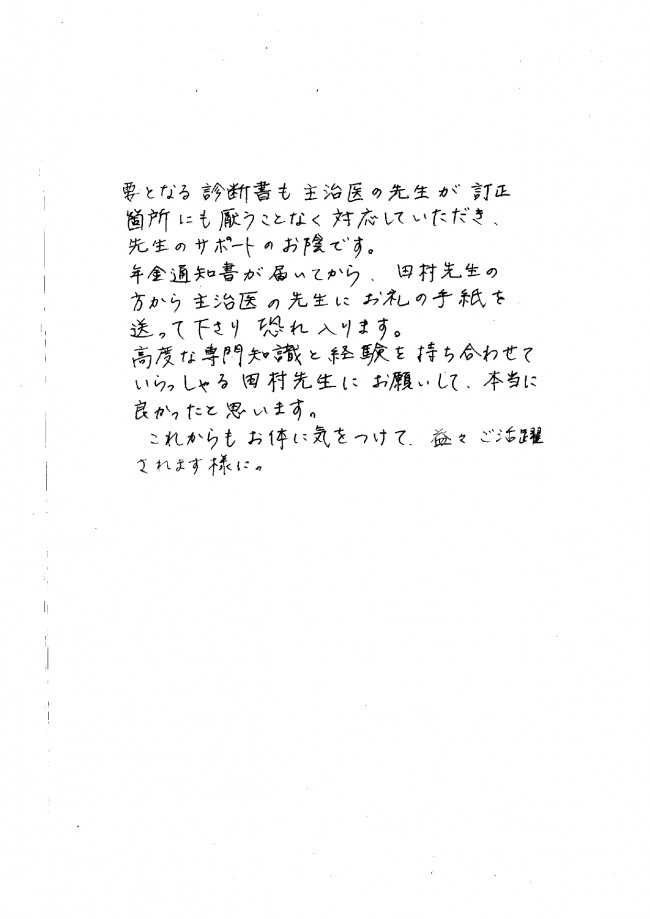 要となる診断書も主治医の先生が訂正
箇所にも厭うことなく対応していただき、
先生のサポートのお陰です。
年金通知書が届いてから、田村先生の
方から主治医の先生にお礼の手紙を
送って下さり恐れ入ります。
高度な専門知識と経験を持ち合わせて
いらっしゃる田村先生にお願いして、本当に
良かったと思います。
これからもお体に気をつけて、益々ご活躍
されます様に。